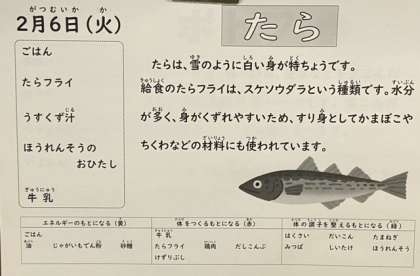 がつむいか か
2月6日(火)
たら
ごはん
たらフライ
うすくず汁
じる
ほうれんそうの
おひたし
ぎゅうにゅう
牛乳
たらは、雪のように白い身が特ちょうです。
ゆき しろ み とく
給食のたらフライは、スケソウダラという種類です。水分
きゅうしょく しゅるい すいぶん
が多く、身がくずれやすいため、すり身としてかまぼこや
おお み み
ちくわなどの材料にも使われています。
ざいりょう つか
エネルギーのもとになる(黄) 体をつくるもとになる(赤) 体の調子を整えるもとになる(緑)
ごはん 牛乳 はくさい だいこん たまねぎ
油 じゃがいもでん粉 砂糖 たらフライ 鶏肉 だしこんぶ みつば しいたけ ほうれんそう
けずりぶし